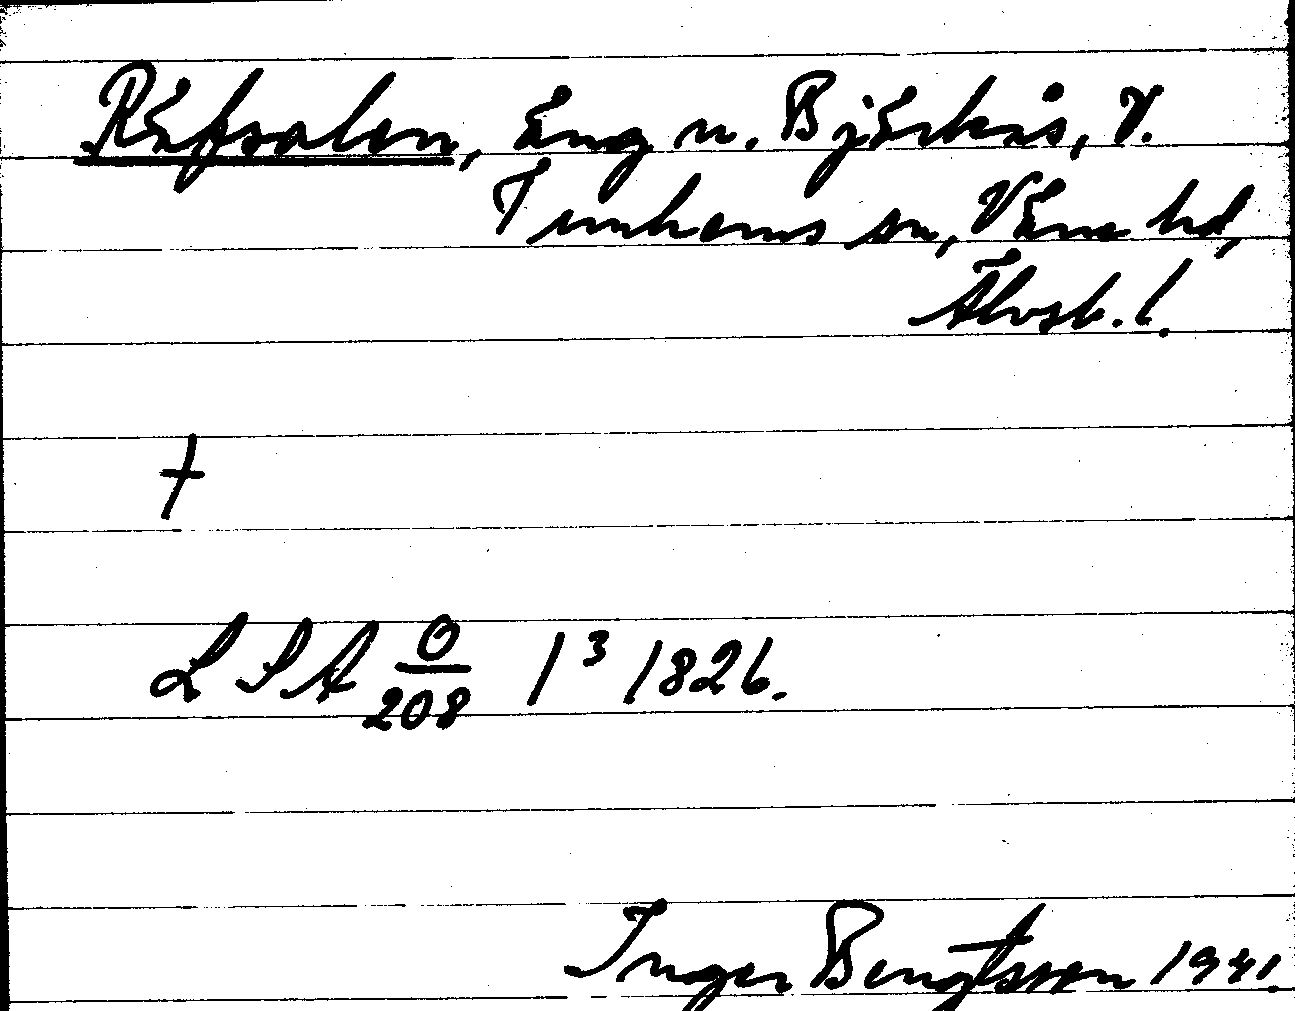 Räfsalen, äng u. Björkås, V.
Tunhems sn, Väne hd,
Älvsb. l.
†
LSA O/208 1³ 1826.
Inger Bengtsson 1941.